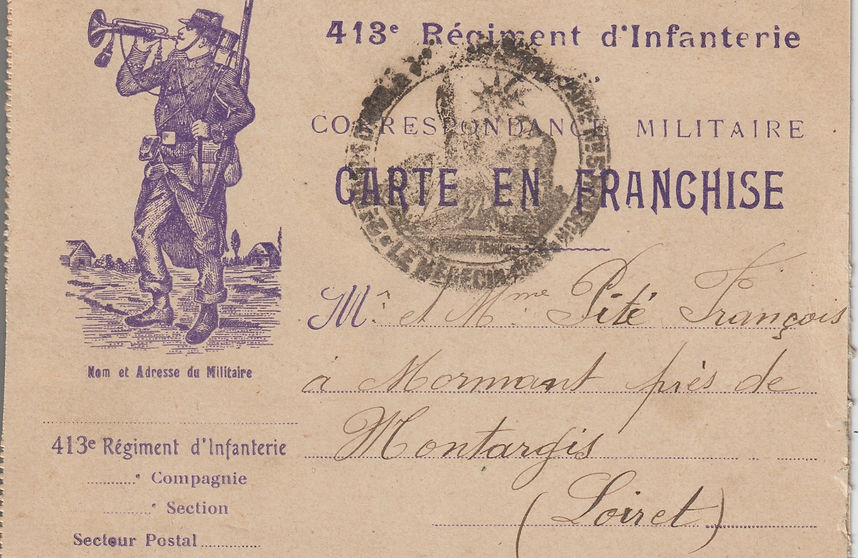 413e Régiment d'Infanterie
CORRESPONDANCE MILITAIRE
CARTE EN FRANCHISE
LE MÉDECIN
Mr. et Mme. Pité François
à Mormant près de
Montargis
(Loiret)
Nom et Adresse du Militaire
413e Régiment d'Infanterie
........e Compagnie
........e Section
Secteur Postal............